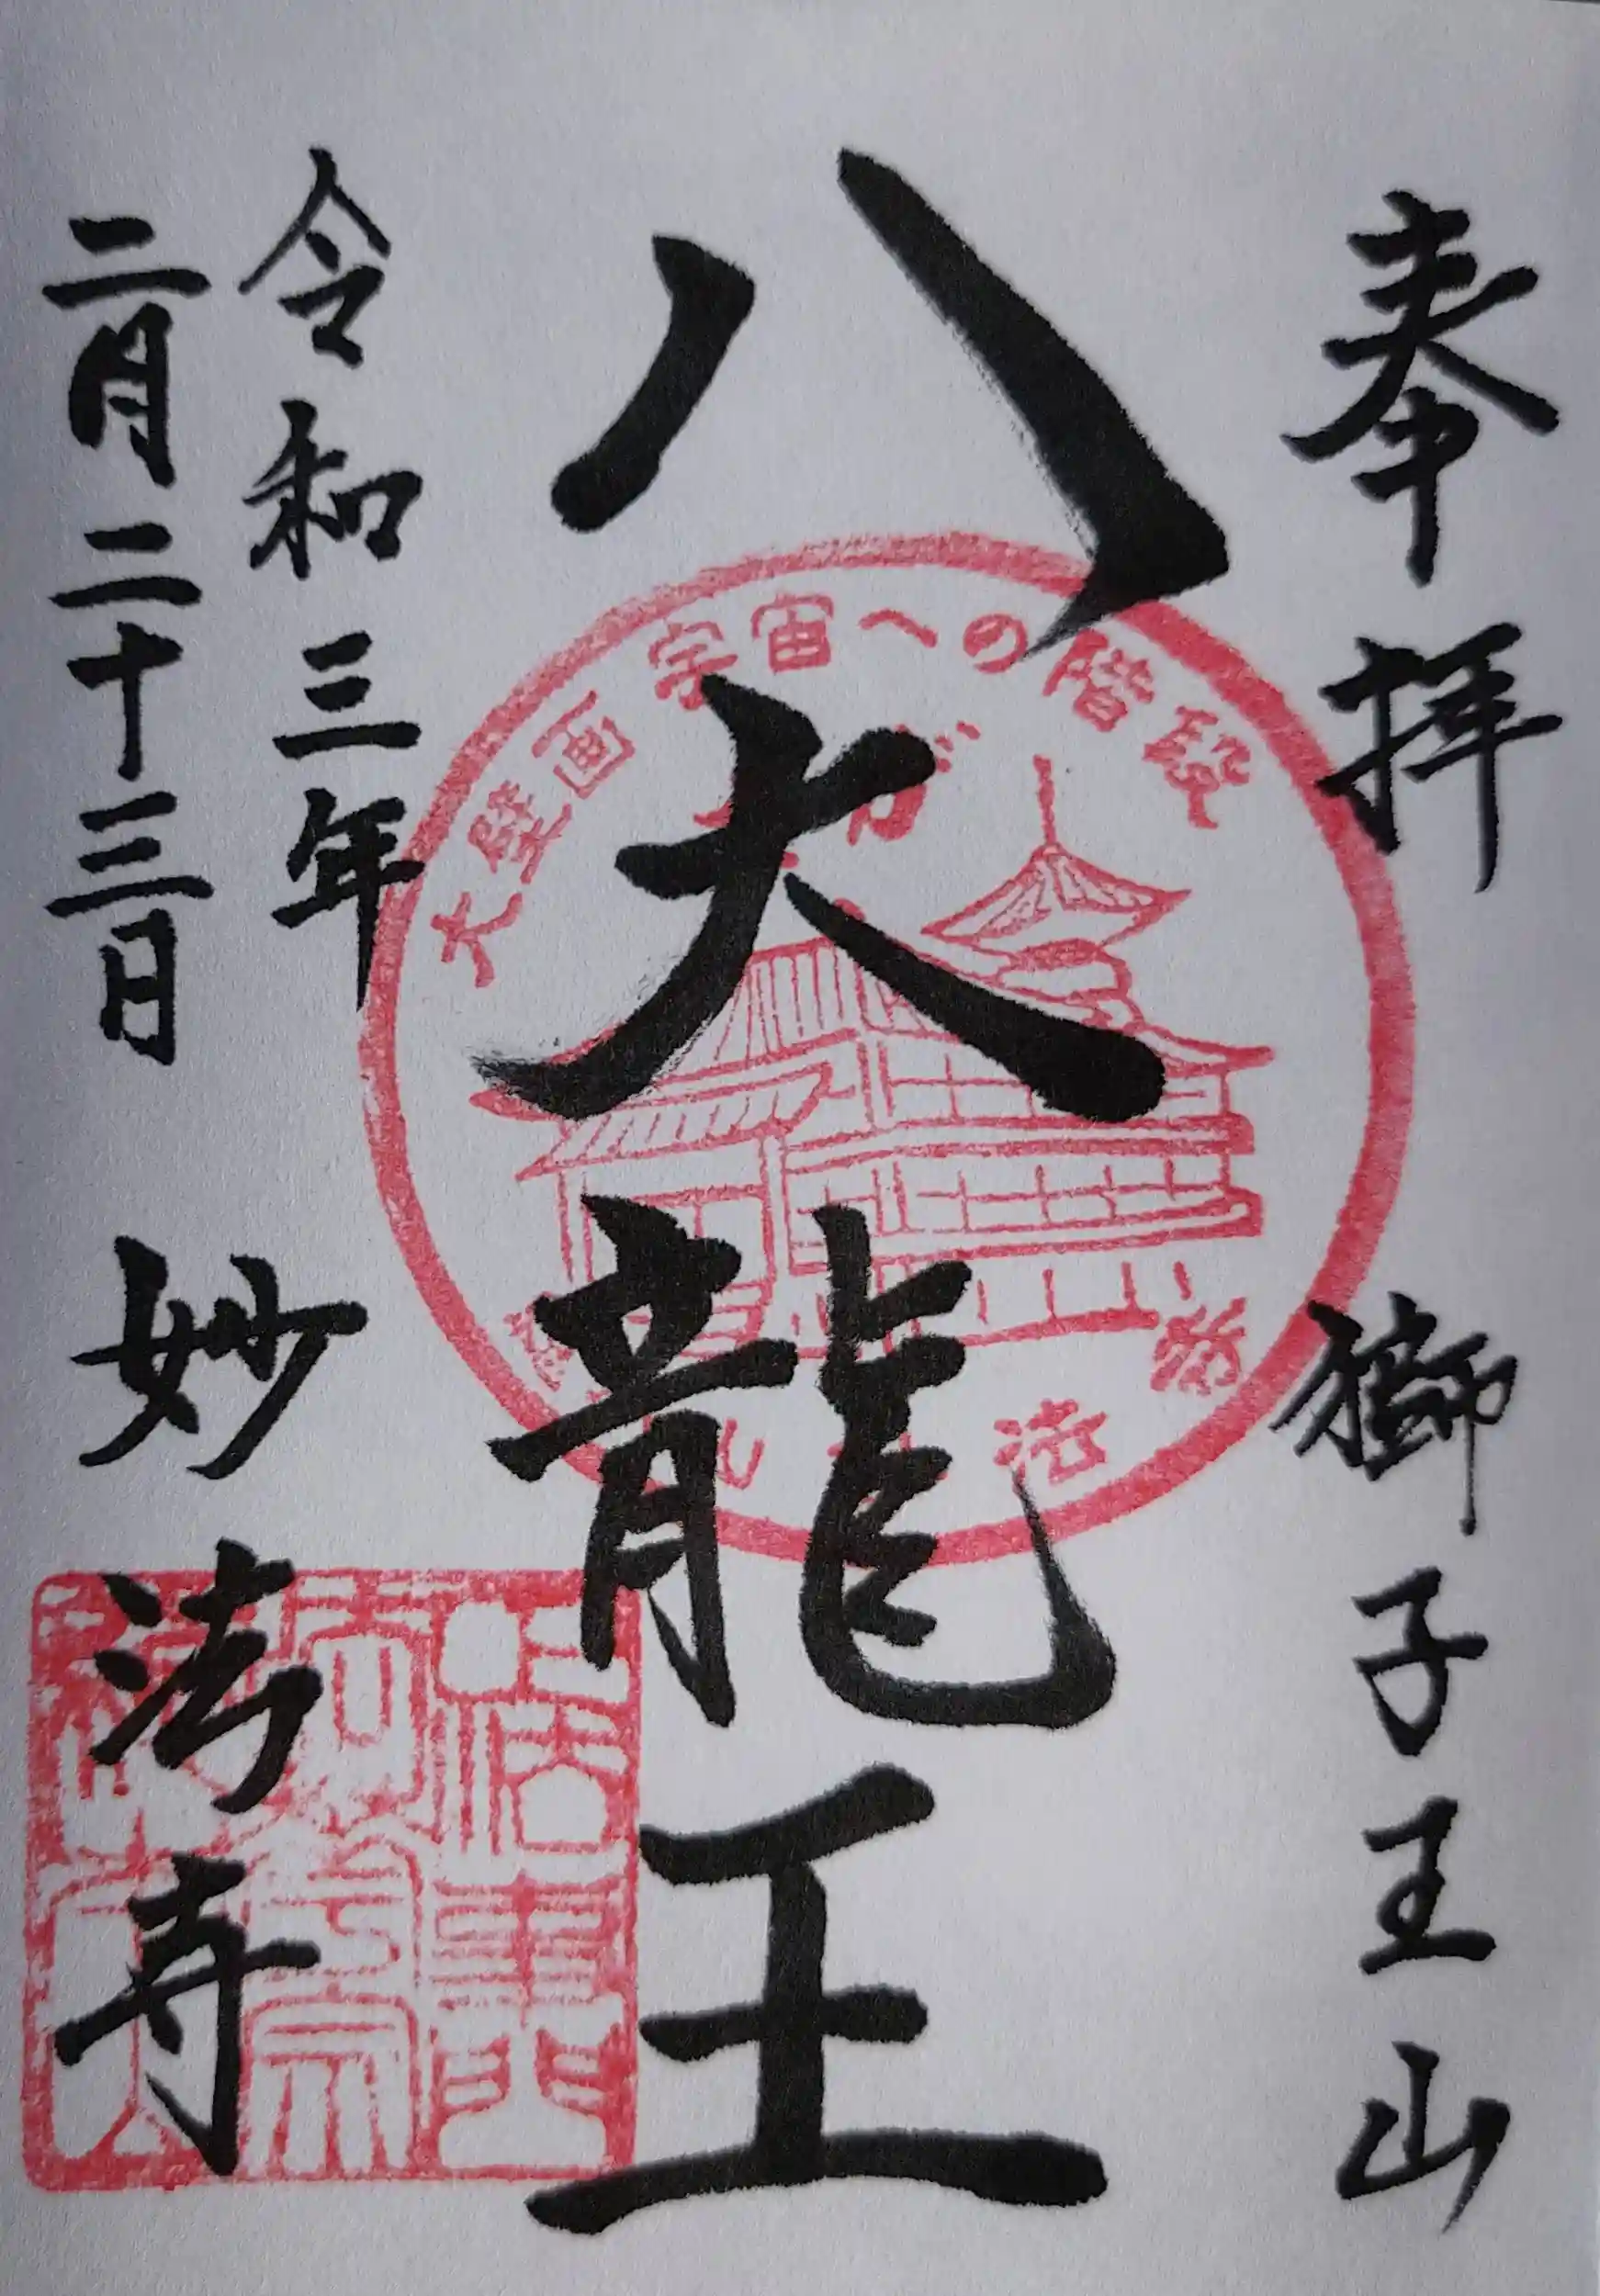 奉拝 獅子王山
八大龍王
令和三年
二月二十三日
妙法寺
大壁画 宇宙への階段